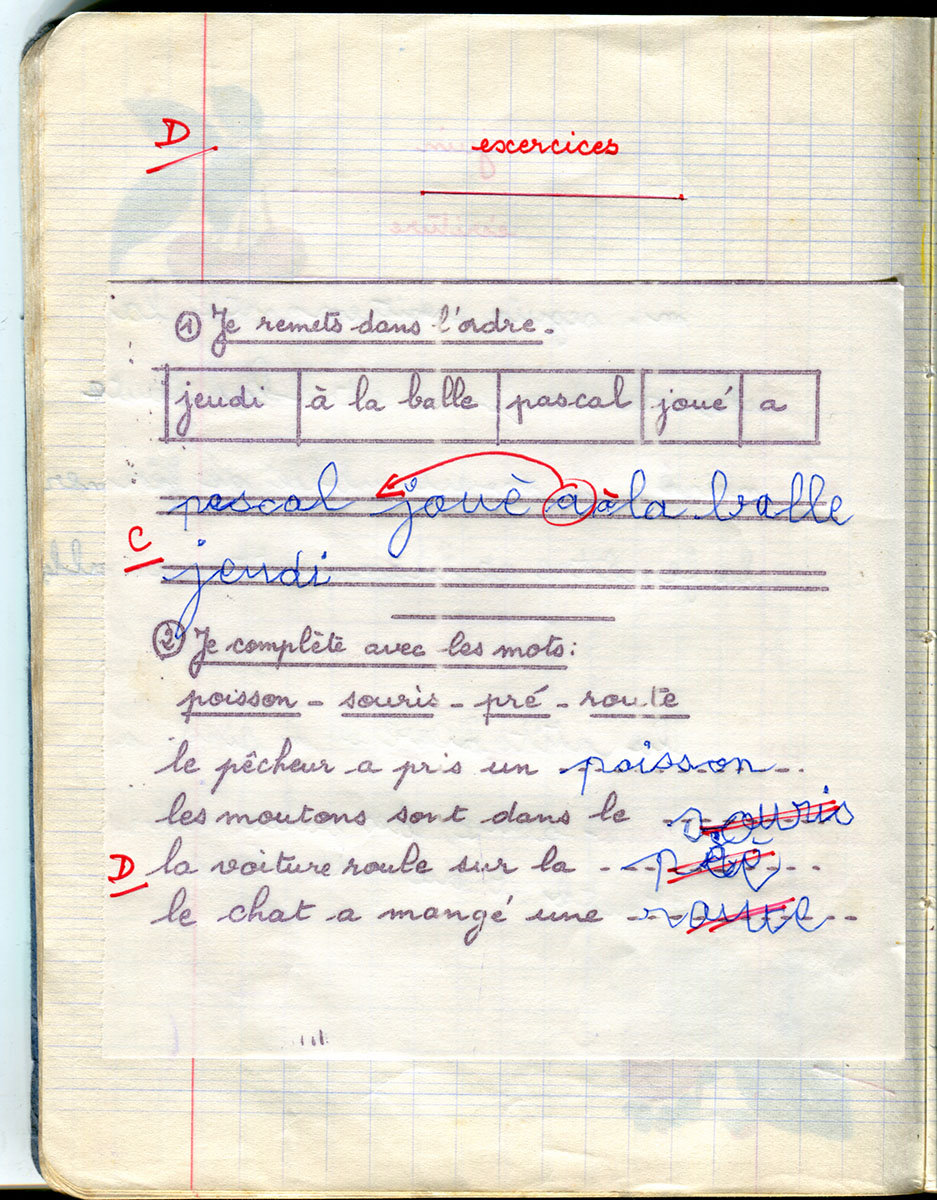 D exercices
① Je remets dans l'ordre.
jeudi à la balle pascal joué a
pascal jouè a à la balle
C
jeudi
② Je complète avec les mots:
poisson - souris - pré - route
le pêcheur a pris un poisson
les moutons sont dans le souris
D la voiture roule sur la
le chat a mangé une route